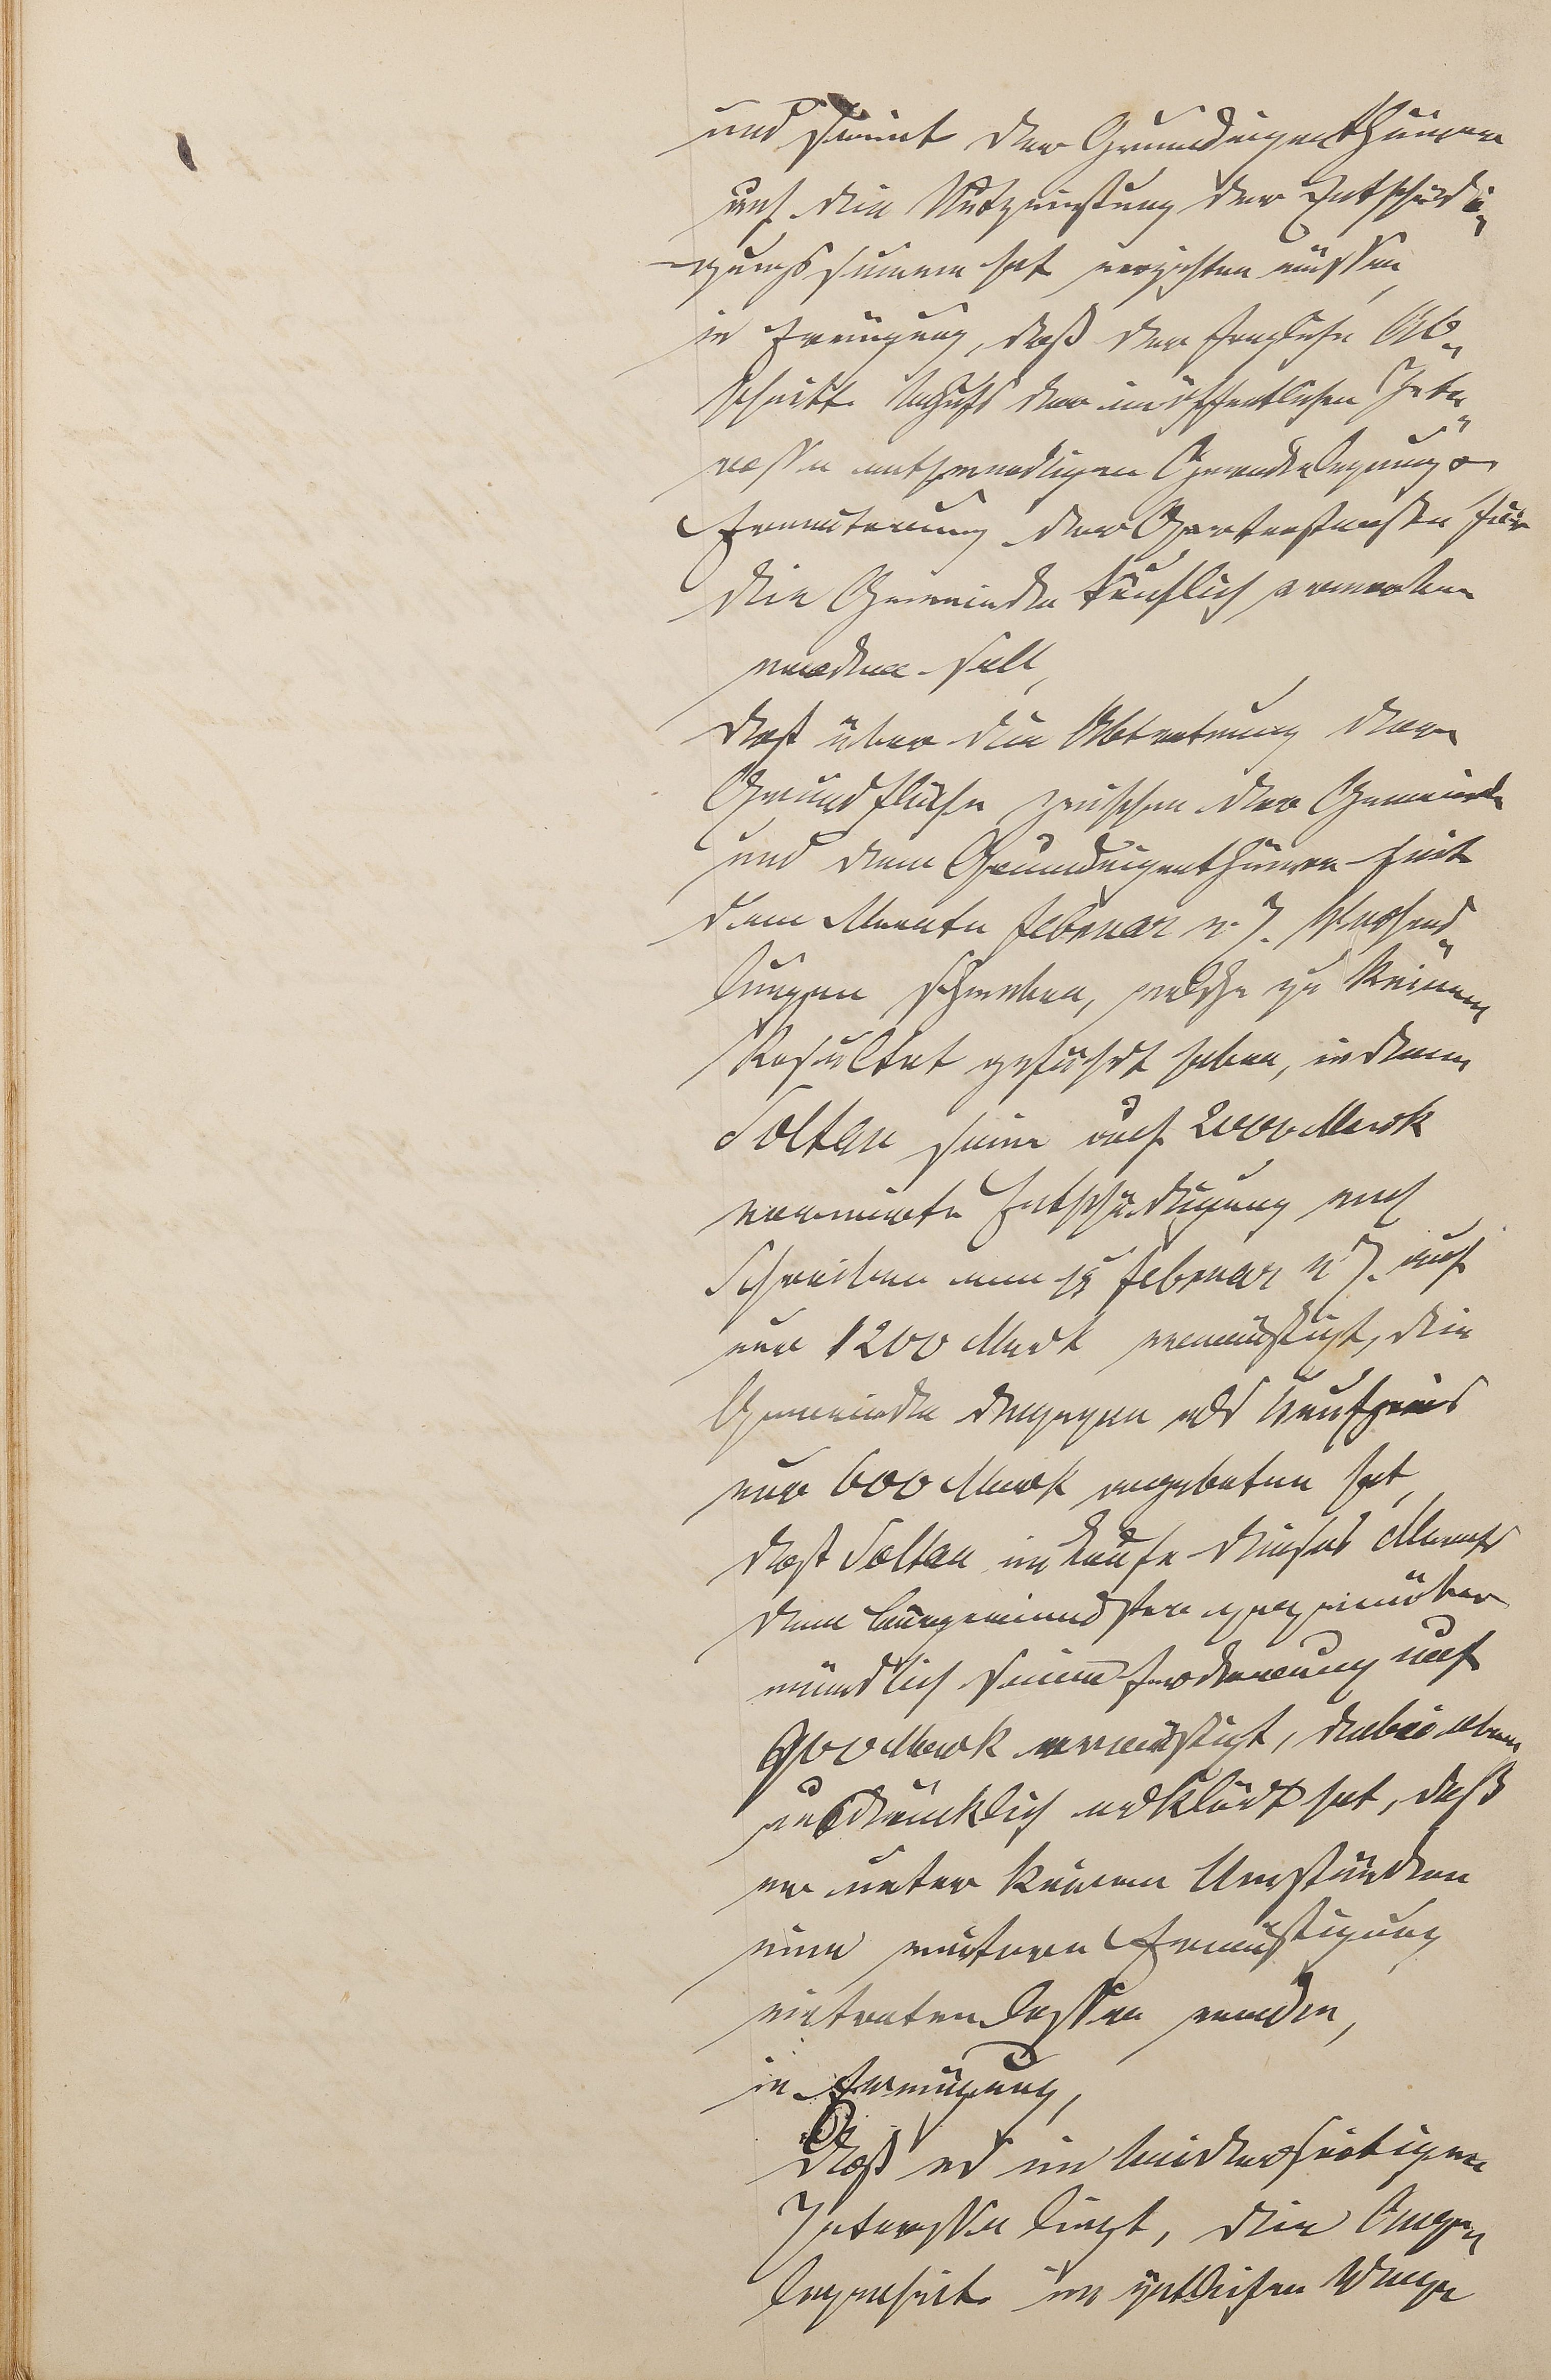 und somit der Grundeigenthümer
auf die Nutznießung der Entschädi-
gungssumme hat verzichten müssen,
in Erwägung, daß der fragliche Ab-
schnitt behufs der im öffentlichen Inte-
resse nothwendigen Geradelegung &
Erweiterung der Gärtnerstraße für
die Gemeinde käuflich erworben
werden soll,
daß über die Abtretung der
Grundfläche zwischen der Gemeinde
und dem Grundeigenthümer seit
dem Monate Februar v. J. Verhand-
lungen schweben, welche zu keinem
Resultat geführt haben, indem
Soltau seine auf 2000 Mark
normirte Entschädigung nach
Schreiben vom Februar v. J. auf
nur 1200 Mark ermäßigt, die
Gemeinde dagegen als Kaufpreis
nur 600 Mark angeboten hat,
daß Soltau im Laufe dieses Monats
dem Bürgermeister gegenüber
mündlich seine Forderung auf
900 Mark ermäßigt, dabei aber
ausdrücklich erklärt hat, daß
er unter keinen Umständen
eine weitere Ermäßigung
eintreten lassen werde,
in Erwägung,
daß es im beiderseitigen
Interesse liegt, die Ange-
legenheit im gütlichen Wege